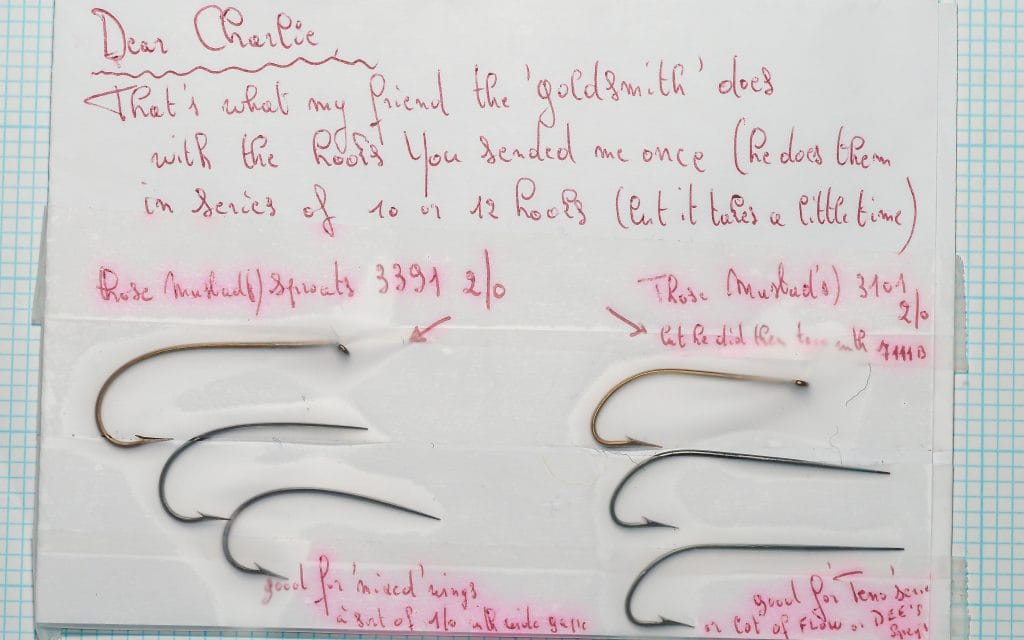 Dear Charlie,
That's what my friend the 'goldsmith' does
with the hooks You sended me once (he does them
in series of 10 or 12 hooks (but it takes a little time)
those Mustad(s) Sproats 3391 2/0
Those Mustad's) 3101
2/0
but he did them too with 7111B
good for 'mixed' wings
à sort of 1/0 with wide gape
good for 'Teno'
or lot of FLOW or DEE'S